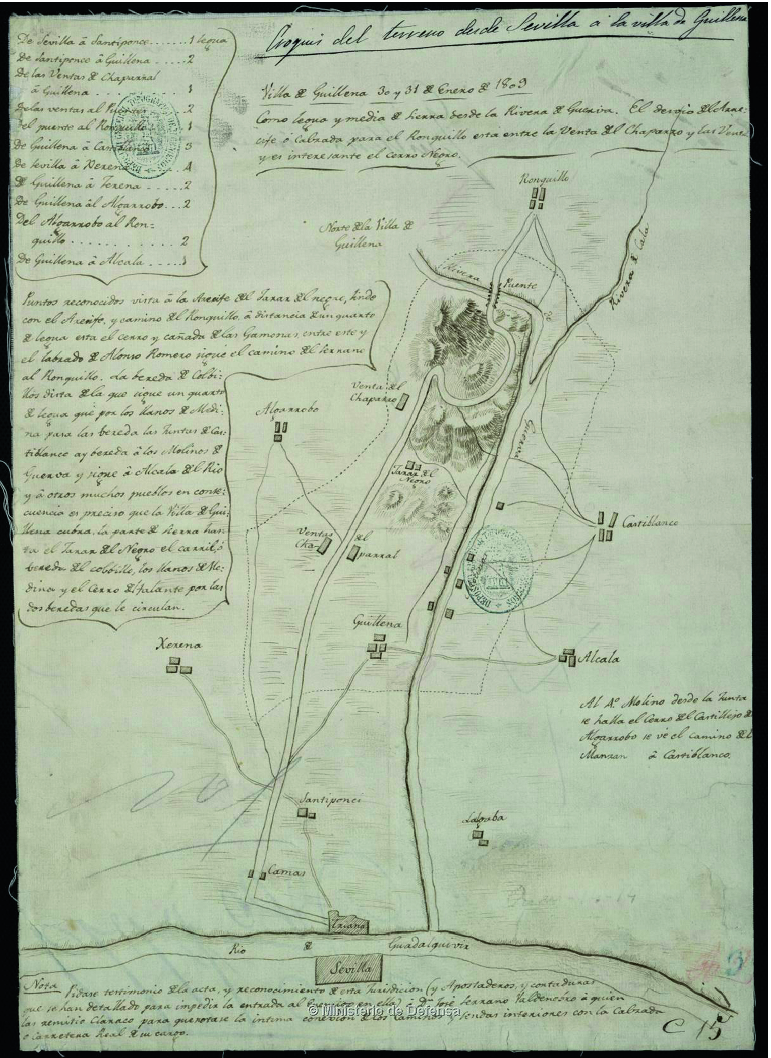 Croquis del terreno desde Sevilla a la villa de Guillena
De Sevilla â Santiponce ..... 1 legua
De Santiponce â Guillena ..... 2
De las Ventas de Chaparral
â Guillena ..... 1
De las ventas al Puente ..... 2
Del puente al Ronquillo ..... 1
De Guillena â Castiblanco ..... 3
De Sevilla â Xerena ..... 4
De Guillena â Xerena ..... 2
De Guillena âl Algarrobo ..... 2
Del Algarrobo al Ron-
quillo ..... 2
De Guillena â Alcala ..... 3
Villa de Guillena 30 y 31 de Enero de 1809
Como legua y media de sierra desde la Rivera de Guerva. El desvio del Arre-
cife ô Calzada para el Ronquillo esta entre la Venta del Chaparro y las Ventas
y es interesante el cerro Negro.
Norte de la Villa de
Guillena
Puntos reconocidos vista â la Arecife del Jarar del negro, linde
con el Arecife, y camino del Ronquillo, â distancia de un quarto
de legua esta el cerro y cañada de las Gamonas, entre este y
el labrado de Alonso Romero sigue el camino del serrano
al Ronquillo. La bereda de Colbi-
llos dista de la que sigue un quarto
de legua que por los llanos de Medi-
na para las bereda las Juntas de Cas-
tiblanco ay bereda â los Molinos de
Guerva y sigue â Alcala del Rio
y â otros muchos pueblos en conse-
cuencia es preciso que la Villa de Gui-
llena cubra, la parte de sierra has-
ta el Jarar del Negro el carril, ô
bereda del colbillo, los llanos de Me-
dina y el Cerro de Jalante por las
dos beredas que le circulan.
Ronquillo
Rivera
Puente
de
Rivera de Cala
Guerva
Venta del
Chaparro
Algarrobo
Jarar del
Negro
Ventas del
Cha- parral
Castiblanco
Guillena
Xerena
Alcala
Al 4º Molino desde la Junta
se halla el Cerro del Castillejo de
Algarrobo se vé el camino del
Manzan â Castiblanco.
Santiponce
Camas
Triana
Rio de Guadalquivir
Sevilla
Nota Pidase testimonio de la acta, y reconocimiento de esta Jurisdicion (y Apostaderos, y contaduras
que se han detallado para impedir la entrada al Enemigo en ella) â Dn. José Serrano Valdenebro â quien
las remitio para que la intima conexion de los caminos y sendas interiores con la Calzada
o carretera Real de
C 15
© Ministerio de Defensa